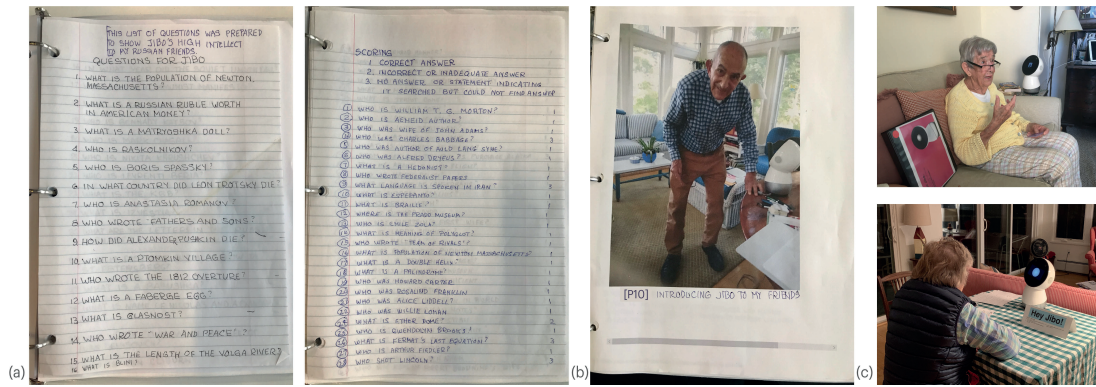 THIS LIST OF QUESTIONS WAS PREPARED
TO SHOW JIBO'S HIGH INTELLECT
TO MY RUSSIAN FRIENDS.
QUESTIONS FOR JIBO
1. WHAT IS THE POPULATION OF NEWTON,
MASSACHUSETTS?
2. WHAT IS A RUSSIAN RUBLE WORTH
IN AMERICAN MONEY?
3. WHAT IS A MATRYOSHKA DOLL?
4. WHO IS RASKOLNIKOV?
5. WHO IS BORIS SPASSKY?
6. IN WHAT COUNTRY DID LEON TROTSKY DIE?
7. WHO IS ANASTASIA ROMANOV?
8. WHO WROTE "FATHERS AND SONS"?
9. HOW DID ALEXANDER PUSHKIN DIE?
10. WHAT IS A POTOMKIN VILLAGE?
11. WHO WROTE THE 1812 OVERTURE?
12. WHAT IS A FABERGE EGG?
13. WHAT IS GLASNOST?
14. WHO WROTE "WAR AND PEACE"?
15. WHAT IS THE LENGTH OF THE VOLGA RIVER?
16. WHAT IS BLINI?
(a)
SCORING
1. CORRECT ANSWER
2. INCORRECT OR INADEQUATE ANSWER
3. NO ANSWER OR STATEMENT INDICATING
IT SEARCHED BUT COULD NOT FIND ANSWER
1 WHO IS WILLIAM T. G. MORTON? 1
2 WHO IS AENEID AUTHOR? 1
3 WHO WAS WIFE OF JOHN ADAMS? 1
4 WHO WAS CHARLES BABBAGE? 3
5 WHO WAS AUTHOR OF AULD LANG SYNE? 1
6 WHO WAS ALFRED DREYFUS? 1
7 WHAT IS A HEDONIST? 1
8 WHO WROTE FEDERALIST PAPERS 1
9 WHAT LANGUAGE IS SPOKEN IN IRAN? 3
10 WHAT IS ESPERANTO? 1
11 WHAT IS BRAILLE? 1
12 WHERE IS THE PRADO MUSEUM? 1
13 WHO IS EMILE ZOLA? 1
14 WHAT IS MEANING OF POLYGLOT? 1
15 WHO WROTE "PLAN OF RIVALS"? 1
16 WHAT IS POPULATION OF NEWTON MASSACHUSETTS? 1
17 WHAT IS A DOUBLE HELIX? 1
18 WHAT IS A PALINDROME? 1
19 WHO WAS HOWARD CARTER 1
WHO WAS ROSALIND FRANKLIN 1
WHO WAS ALICE LIDDELL? 1
WHO WAS WILLIE LOMAN 1
WHAT IS ETHER DOME? 2
WHO IS GWENDOLYN BROOKS? 1
WHAT IS FERMAT'S LAST EQUATION? 3
WHO IS ARTHUR FIEDLER? 1
WHO SHOT LINCOLN? 3
(b)
[P10] INTRODUCING JIBO TO MY FRIENDS
(c)
Hey Jibo!